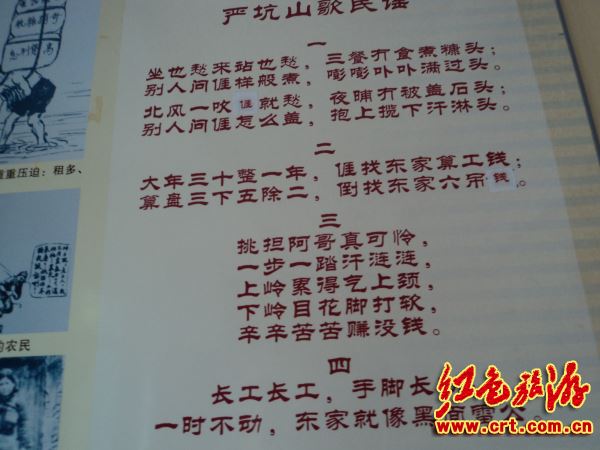 严坑山歌民谣
一
坐也愁来站也愁，三餐冇食煮糠头；
别人问偓样般煮，嘭嘭卟卟满过头。
北风一吹偓就愁，夜晡冇被盖石头；
别人问偓怎么盖，抱上揽下汗淋头。
二
大年三十整一年，偓找东家算工钱；
算盘三下五除二，倒找东家六吊钱。
三
挑担阿哥真可怜，
一步一踏汗涟涟，
上岭累得气上颈，
下岭目花脚打软，
辛辛苦苦赚没钱。
四
长工长工，手脚长
一时不动，东家就像黑面雷公。
重压迫：租多、
的农民
红色旅游
www.crt.com.cn